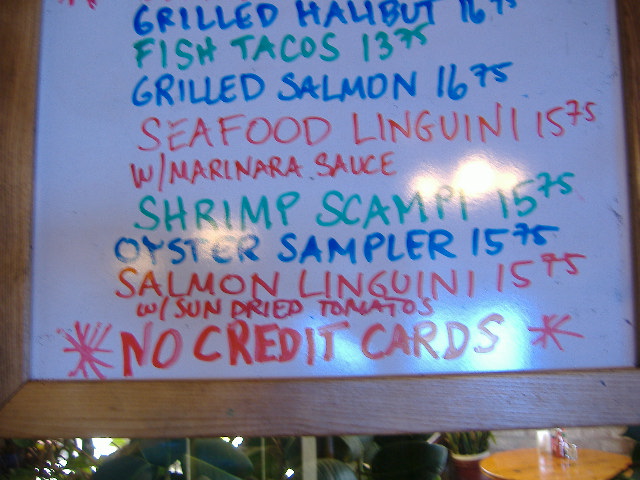 GRILLED HALIBUT 16 75
FISH TACOS 13 75
GRILLED SALMON 16 75
SEAFOOD LINGUINI 15 75
W/MARINARA SAUCE
SHRIMP SCAMPI 15 75
OYSTER SAMPLER 15 75
SALMON LINGUINI 15 75
W/SUN DRIED TOMATOS
NO CREDIT CARDS